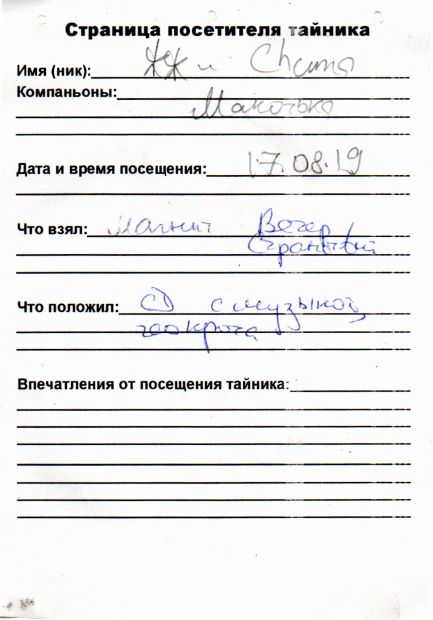 Страница посетителя тайника
Имя (ник): ЖЖ и
Компаньоны:
Дата и время посещения: 17.08.19
Что взял: Магнит Вечер
Странный
Что положил: CD с музыкой
геокрота
Впечатления от посещения тайника: